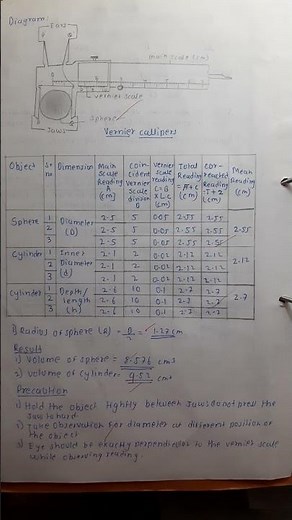 Diagram:
Jaw
main scale (cm)
vernier scale
sphere
Jaws
Vernier callipers
Object | Sr no | Dimension | Main Scale Reading A (cm) | Coincident vernier scale division B | Vernier scale reading C=B x L.C (cm) | Total Reading =A+C (cm) | Corrected Reading =T±Z (cm) | Mean Reading (cm)
Sphere | 1 | Diameter (D) | 2.5 | 5 | 0.05 | 2.55 | 2.55 | 2.55
2 | 2.5 | 5 | 0.05 | 2.55 | 2.55
3 | 2.5 | 5 | 0.05 | 2.55 | 2.55
Cylinder | 1 | Inner Diameter (d) | 2.1 | 2 | 0.02 | 2.12 | 2.12 | 2.12
2 | 2.1 | 2 | 0.02 | 2.12 | 2.12
3 | 2.1 | 2 | 0.02 | 2.12 | 2.12
Cylinder | 1 | Depth/ length (h) | 2.6 | 10 | 0.1 | 2.7 | 2.7 | 2.7
2 | 2.6 | 10 | 0.1 | 2.7 | 2.7
3 | 2.6 | 10 | 0.1 | 2.7 | 2.7
1) Radius of sphere (R) = D/2 = 1.27 cm
Result
1) Volume of sphere = 8.576 cm3
2) Volume of Cylinder = 9.52 cm3
Precaution
1) Hold the object lightly between Jaws do not press the Jaw to hard.
2) Take observation for diameter at different position of the object
3) Eye should be exactly perpendicular to the vernier scale
while observing reading.